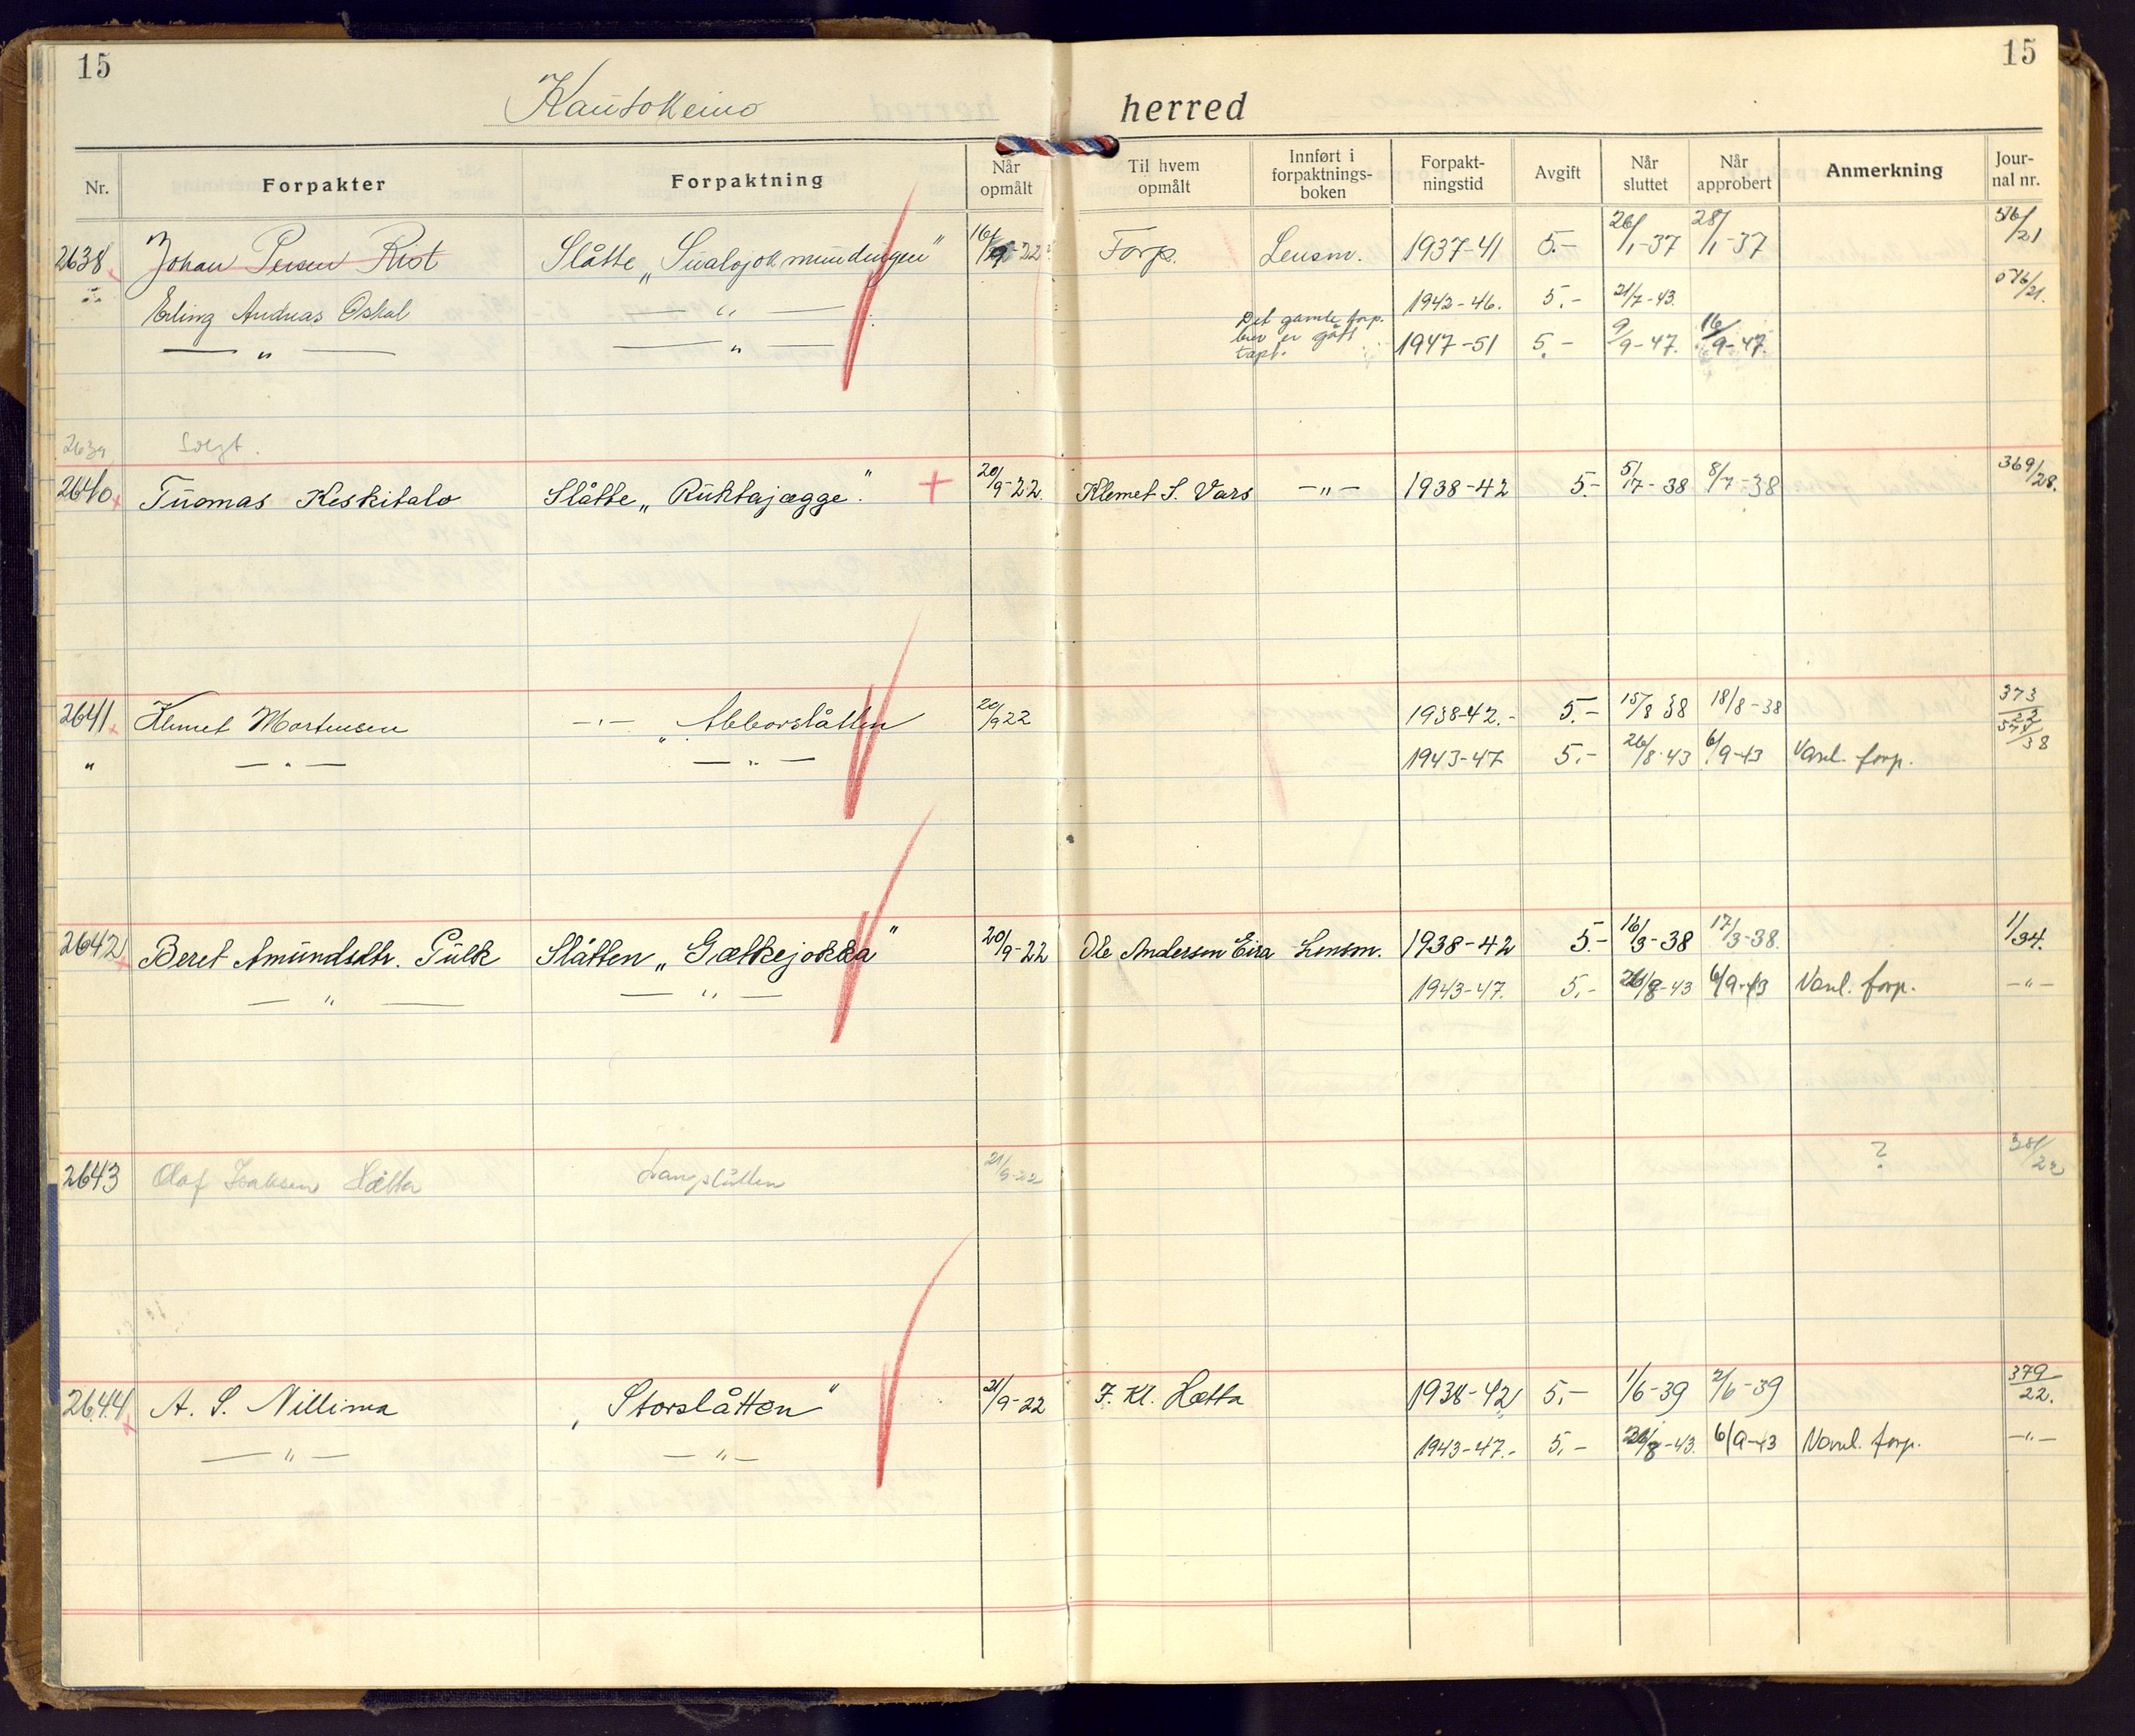 15
15
Kautokeino herred
Nr. Forpakter Forpaktning Når opmålt Til hvem opmålt Innført i forpaktnings-boken Forpakt-ningstid Avgift Når sluttet Når approbert Anmerkning Jour-nal nr.
2638 Johan Persen Rist Slåtte „Sualojokmundingen" 16/9-22 Forp. Lensm. 1937-41 5.- 26/1-37 28/1-37 576/21
Erling Andreas Oskal — " — 1942-46. 5.- 21/7-43. 576/21.
Det gamle forp.
brev er gått
tapt.
— " — — " — 1947-51 5.- 9/9-47. 16/9-47.
2639 Solgt.
2640 Tuomas Keskitalo Slåtte „Ruktajægge". + 20/9-22. Klemet S. Vars -"- 1938-42 5.- 5/7-38 8/7-38 369/28.
2641 Klemet Mortensen -"- „Abborslåtten 20/9 22 1938-42.- 5.- 15/8 38 18/8-38 373/22
" — " — — " — 1943-47 5.- 26/8-43 6/9-43 Vanl. forp. 574/38
2642 Beret Amundsdtr. Pulk Slåtten „Gætkejokka" 20/9-22 Ole Andersen Eira Lensm. 1938-42 5.- 16/3-38 17/3-38. 1/34.
— " — — " — 1943-47. 5.- 26/8-43 6/9-43 Vanl. forp. -"-
2643 Olaf Isaksen Hætta Langslåtten 21/9-22 ? 381/22
2644 A. S. Nillima „Storslåtten" 21/9-22 J. Kl. Hætta 1938-42 5.- 1/6-39 2/6-39 379/22.
— " — — " — 1943-47.- 5.- 26/8-43. 6/9-43 Vanl. forp. -"-